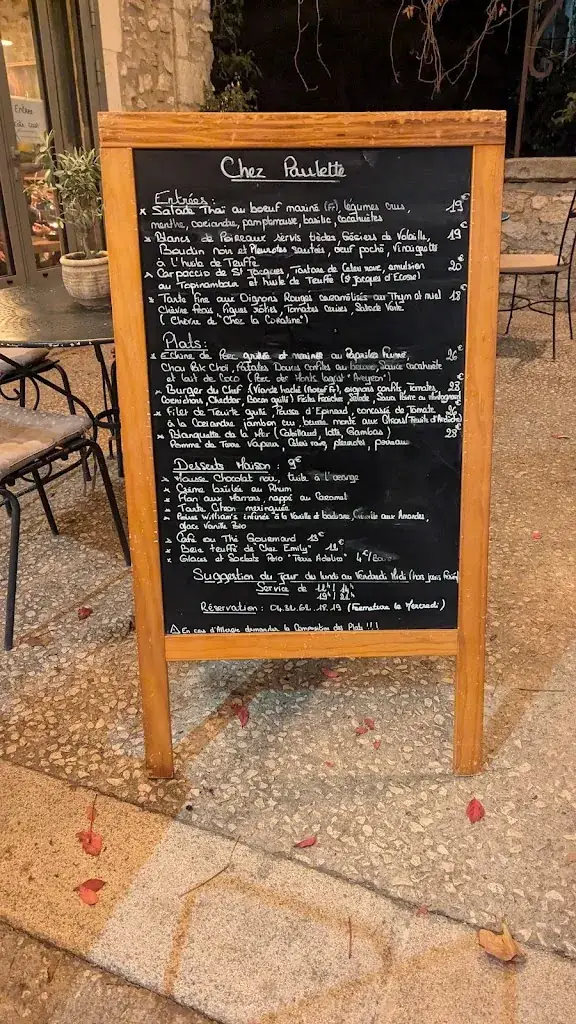 Entrée
Chez Paulette
Entrées :
x Salade Thaï au boeuf mariné (Fr), légumes crus, 19€
menthe, coriandre, pamplemousse, basilic, cacahuètes
x Blancs de Poireaux servis tièdes, Gésiers de Volaille, 19€
Boudin noir et Pleurotes sautés, oeuf poché, Vinaigrette
à l'huile de Truffe
x Carpaccio de St Jacques, Tartare de Céleri rave, émulsion 20€
au Topinambour et huile de Truffe (St Jacques d'Ecosse)
x Tarte fine aux Oignons Rouges caramélisés au Thym et miel 18€
Chèvre frais, Figues rôties, Tomates cerises, Salade Verte
( Chèvre de "Chez la Coraline")
Plats :
x Echine de Porc grillée et marinée au Paprika Fumé, 26€
Chou Pak Choï, Patates Douces confites au beurre, Sauce cacahuète
et lait de Coco (Porc des Monts Lagast "Aveyron")
x Burger du Chef (Viande haché (Boeuf Fr), oignons confits, Tomates, 23
Cornichons, Cheddar, Bacon grillé) Frites Fraîches, Salade, Sauce
x Filet de Truite grillé, Pousse d'Epinard, concassé de Tomate 26
à la Coriandre, jambon cru, beurre monté aux (Truite d'Ardèche)
x Blanquette de la Mer (Cabillaud, lotte, Gambas) 28€
Pomme de Terre Vapeur, Céleri rave, pleurotes, poireau
Desserts Maison : 9€
x Mousse Chocolat noir, tuile à l'orange
x Crème brûlée au Rhum
x Flan aux Marrons, nappé au Caramel
x Tarte Citron meringuée
x Poires William's infusées à la Vanille et badiane, aux Amandes,
glace Vanille Bio
x Café ou Thé Gourmand 13€
x Brie truffé de "Chez Emily" 11€
x Glaces et Sorbets Bio "Terre Adélice" 4€/
Suggestion du jour du lundi au Vendredi Midi (hors jours Fériés)
Service de 12H / 14H
19H / 21H
Réservation : 04.32.62.18.19 (Fermeture le Mercredi)
⚠ En cas d'Allergie demander la Composition des Plats !!!